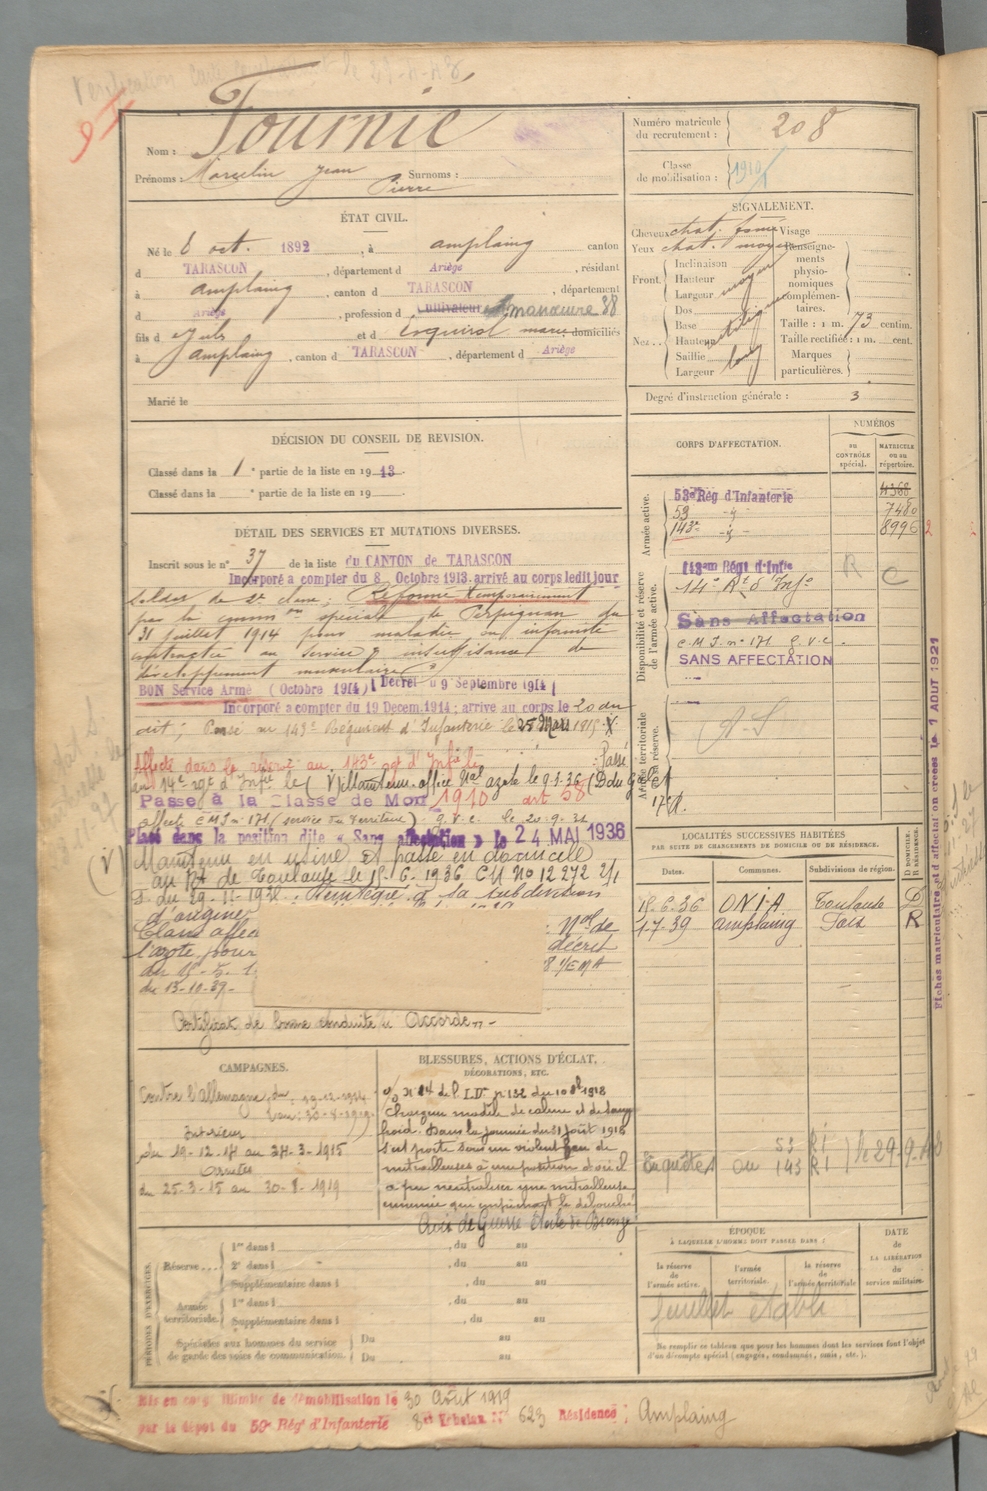 Vérification le 23-4-48
Nom : Fournié
Prénoms : Marcelin Jean Surnoms :
Pierre
Numéro matricule
du recrutement : 208
Classe
de mobilisation : 1910
ÉTAT CIVIL.
Né le 6 oct. 1892, à amplaing canton
d TARASCON, département d Ariège, résidant
à amplaing, canton d TARASCON, département
d Ariège, profession d cultivateur manœuvre 88
fils d Jules et d Esquirol marie domiciliés
à amplaing, canton d TARASCON, département d Ariège
Marié le
SIGNALEMENT.
Cheveux chat. foncé
Yeux chat. moyen
Front.
Inclinaison
Hauteur moyen
Largeur
Nez..
Dos
Base
Hauteur
Saillie
Largeur long
Visage
Renseigne-
ments
physio-
nomiques
complémen-
taires.
Taille : 1 m. 73 centim.
Taille rectifiée : 1 m. cent.
Marques
particulières.
Degré d'instruction générale : 3
DÉCISION DU CONSEIL DE REVISION.
Classé dans la 1e partie de la liste en 1913.
Classé dans la e partie de la liste en 19
DÉTAIL DES SERVICES ET MUTATIONS DIVERSES.
Inscrit sous le n° 37 de la liste du CANTON de TARASCON
Incorporé a compter du 8 Octobre 1913. arrivé au corps ledit jour
soldat de 2e classe; Réformé temporairement
par la common spéciale de Perpignan du
31 juillet 1914 pour maladie ou infirmité
contractée au service insuffisance de
développement musculaire
BON Service Armé (Octobre 1914) (Decret du 9 Septembre 1914)
Incorporé a compter du 19 Decem. 1914; arrivé au corps le 20 du
dit; Passé au 143e Régiment d'Infanterie le 25 Mars 1915
Affecté dans la réserve au 143e rgt d'Infie
Passé
au 14e rgt d'Infie le
Passé à la Classe de Mon 1910 art 58
affecté C M J n° 171 (service du Territoire) g.v.c. le 20.9.31
Placé dans la position dite « Sans affectation » le 24 MAI 1936
Maintenu en usine et passé en domicile
au Bt de Toulouse le 18-6-1936 CM No 12272 2/1
D. du 29-11-1938. Réintégré sa subdivision
d'origine
Nal de
l'azote pour
décret
du 13-10-39-
Certificat de bonne conduite Accordé
CORPS D'AFFECTATION.
NUMÉROS
au
CONTRÔLE
spécial.
MATRICULE
ou au
répertoire.
Armée active.
53e Rég d'Infanterie 4368
53 -y- 7480
143e -y- 8996
Disponibilité et réserve
de l'armée active.
143em Régt d'Infie
14e Rt d'Infe R C
Sans Affectation
C.M.J. n° 171 G.V.C.
SANS AFFECTATION
Armée territoriale
et sa réserve.
A.S
LOCALITÉS SUCCESSIVES HABITÉES
PAR SUITE DE CHANGEMENTS DE DOMICILE OU DE RÉSIDENCE.
Dates. Communes. Subdivisions de région. D DOMICILE. R RÉSIDENCE.
18-6-36 ONIA Toulouse D
1-7-39 amplaing Foix R
Enquêtes au 53 RI
143 RI
Fiches matriculaire et d'affectation créées le 1 AOUT 1921
CAMPAGNES.
Contre l'allemagne du 19-12-1914
au 30-8-1919
Intérieur
du 19-12-14 au 24-3-1915
Armées
du 25-3-15 au 30-8-1919
BLESSURES, ACTIONS D'ÉCLAT,
DÉCORATIONS, ETC.
O/ N°84 de l'I.D. n°132 du 10 1918
Chargeur modèle de calme et de sang
froid. Dans la journée du 31 août 1918
s'est porté sous un violent feu de
mitrailleuses à une position d'où il
a pu neutraliser une mitrailleuse
ennemie qui empêchait le débouché
Croix de Guerre étoile de Bronze
PÉRIODES D'EXERCICES.
Réserve....
1re dans l , du au
2e dans l , du au
Supplémentaire dans l , du au
Armée
territoriale.
1re dans l , du au
Supplémentaire dans l , du au
Spéciales aux hommes du service
de garde des voies de communication.
Du au
Du au
ÉPOQUE
À LAQUELLE L'HOMME DOIT PASSER DANS :
la réserve
de
l'armée active.
l'armée
territoriale.
la réserve
de
l'armée territoriale
DATE
de
LA LIBÉRATION
du
service militaire.
feuillet établi
Ne remplir ce tableau que pour les hommes dont les services font l'objet
d'un décompte spécial (engagés, condamnés, omis, etc.).
Mis en congé illimité de démobilisation le 30 Août 1919
par le dépôt du 59e Régt d'Infanterie 8e Echelon N° 623 Résidence : Amplaing